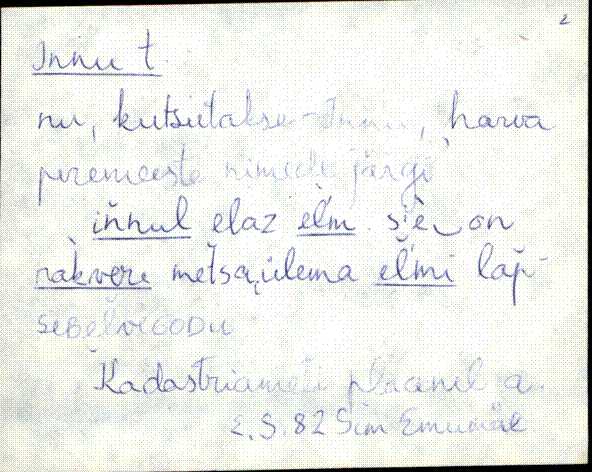 2
Innu t.
nu, kutsutakse Innu, harva
peremeeste nimede järgi
iňnul elaz el'm. siè on
ràkvere metsaülema el'mi lap-
sepelvecodu
Kadastriameti plaanil a.
2.3.82 Sim Emumäe